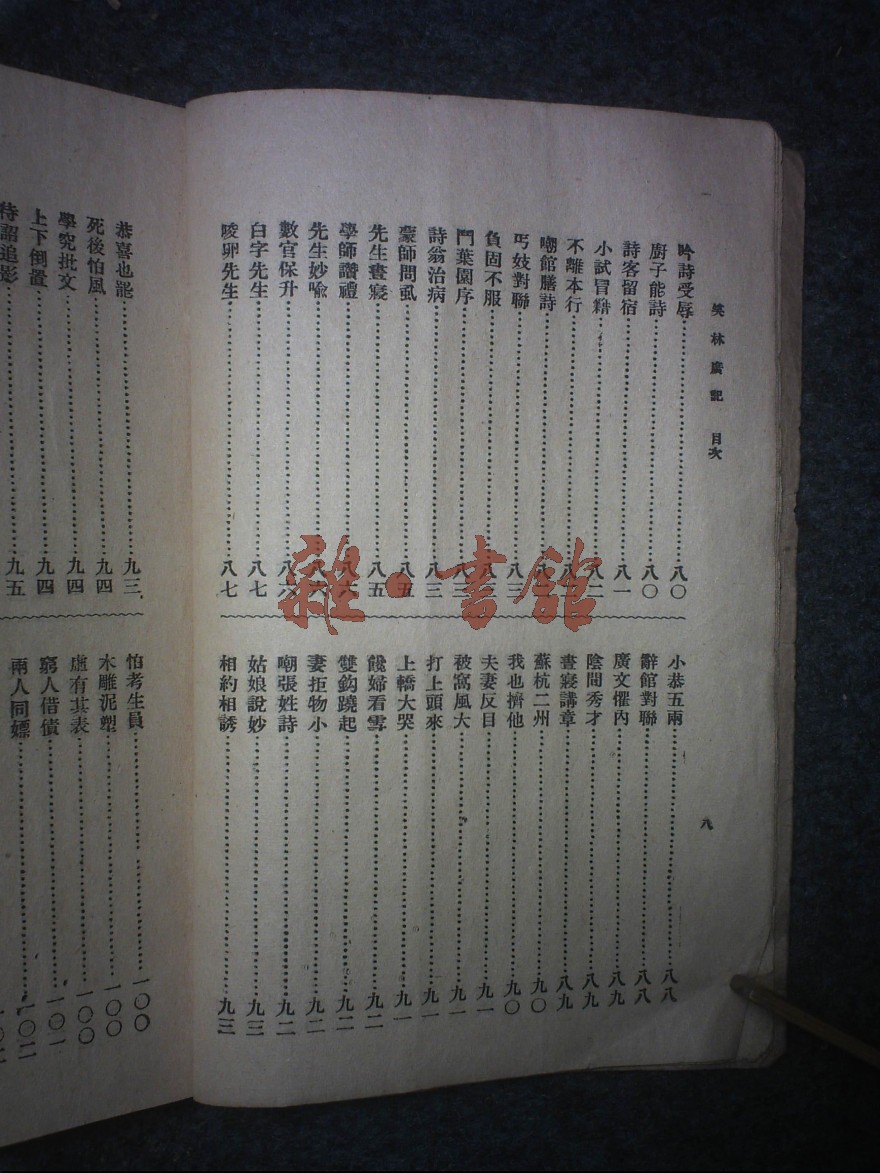 笑林廣記 目次
八
吟詩受辱……八〇
廚子能詩……八〇
詩客留宿……八一
小試冒籍……八二
不離本行
嘲館膳詩
丐妓對聯……八三
負固不服
鬥葉園序
詩翁治病……八三
蒙師問虱……八五
先生晝寢……八五
學師讚禮……八六
先生妙喩……八六
數官保升……八六
白字先生……八七
唆卵先生……八七
小恭五兩……八八
辭館對聯……八八
廣文懼內……八九
陰間秀才……八九
晝寢講章……八九
蘇杭二州……九〇
我也擠他……九〇
夫妻反目……九一
被窩風大……九一
打上頭來……九一
上轎大哭……九一
饞婦看雪……九二
雙鈎蹺起……九二
妻拒物小……九二
嘲張姓詩……九二
姑娘說妙……九三
相約相誘……九三
恭喜也罷……九三
死後怕風……九四
學究批文……九四
上下倒置……九四
待詔追影……九五
怕考生員……一〇〇
木雕泥塑……一〇〇
虛有其表……一〇〇
窮人借債……一〇一
兩人同嫖……一〇二
雜·書館